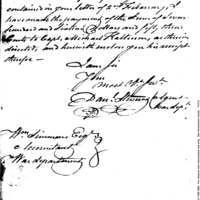 contained in your letter of 2nd February, I
have made the payment of the Sum of Seven
hundred and Sixteen Dollars and fifty three
Cents to Capt. Michael Kalteisen as therein
directed; and herewith enclose you his receipt
therefor
I am Sir
Your
most Ob. Servt
Danl Stevens
Wm Simmons Esqr
Accountant
War department